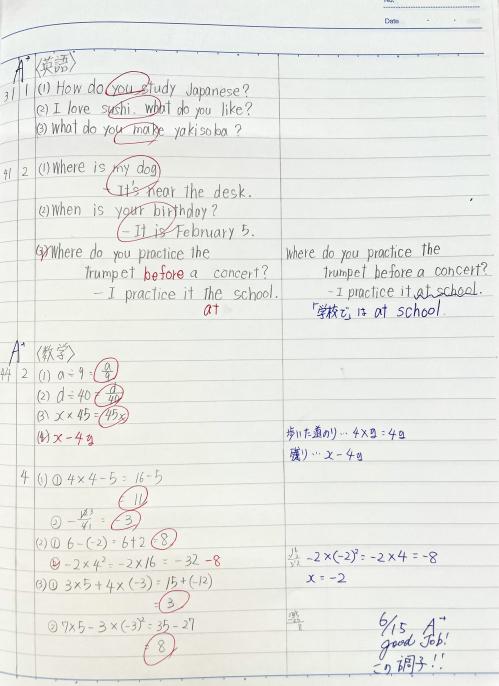 No.
Date
A+ 〈英語〉
31 1 (1) How do you study Japanese?
(2) I love sushi. What do you like?
(3) What do you make yakisoba?
41 2 (1) Where is my dog
- It's near the desk.
(2) When is your birthday?
- It is February 5.
(3) Where do you practice the
trumpet before a concert?
- I practice it the school.
at
Where do you practice the
trumpet before a concert?
- I practice it at school.
「学校で」は at school.
A+ 〈数学〉
44 2 (1) a÷9 = a/9
(2) d÷40 = d/40
(3) x×45 = 45x
(4) x-4g
歩いた道のり…4×g=4g
残り…x-4g
4 (1) ① 4×4-5 = 16-5
= 11
② = -3
(2) ① 6-(-2) = 6+2 = 8
② -2×4² = -2×16 = -32 -8
-2×(-2)² = -2×4 = -8
x = -2
(3) ① 3×5+4×(-3) = 15+(-12)
= 3
② 7×5-3×(-3)² = 35-27
= 8
6/15 A+
good Job!
この調子!!